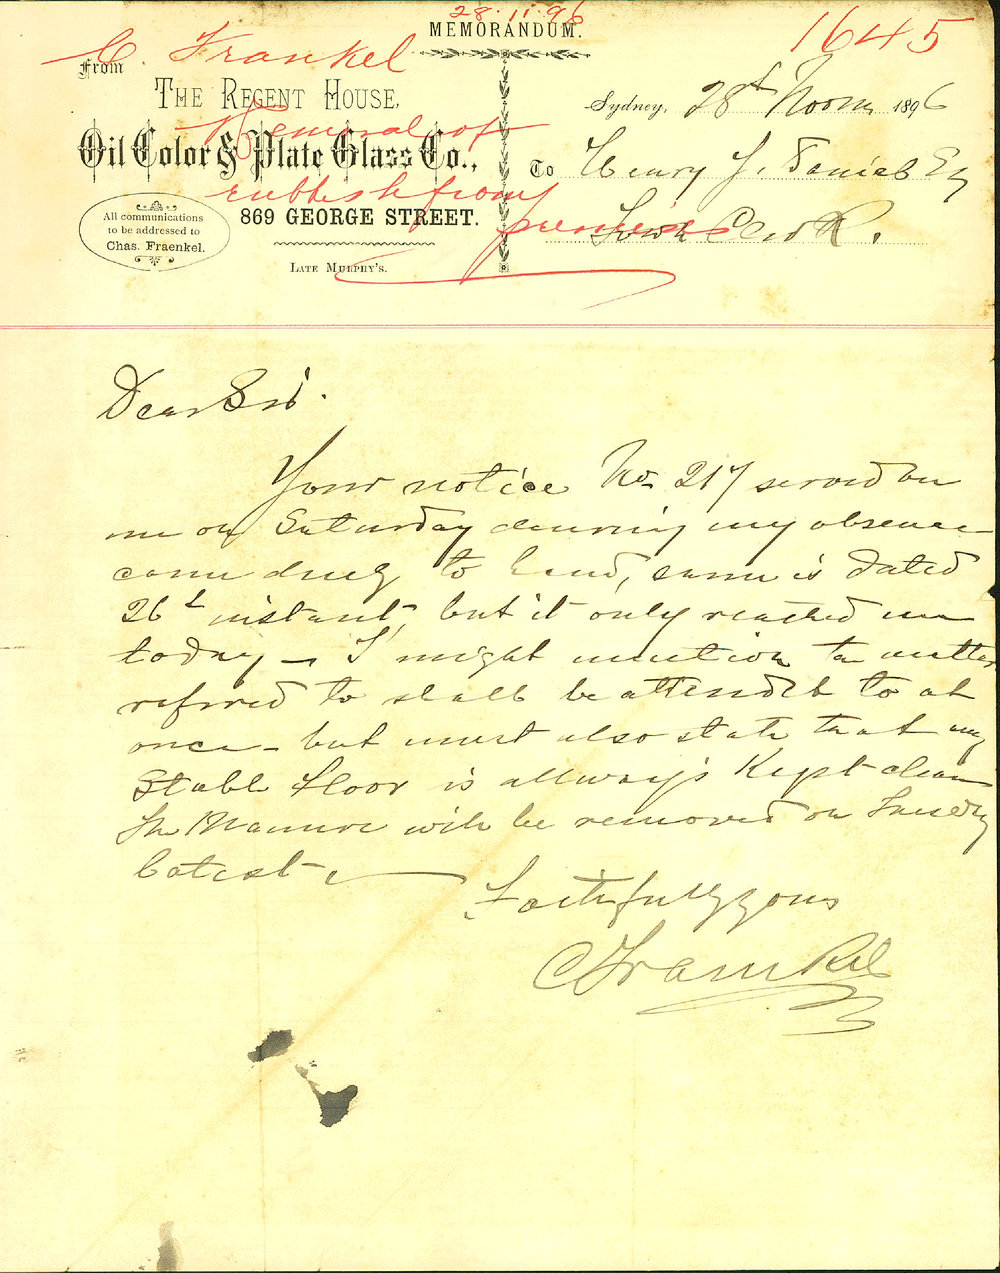 28.11.96
MEMORANDUM.
1645
C. Frankel
From
THE REGENT HOUSE.
Sydney, 28th Novm 1896
Removal of
Oil Color & Plate Glass Co.,
To Henry J. Daniels Esq
rubbish from
premises
869 GEORGE STREET.
Town Clerk.
All communications
to be addressed to
Chas. Fraenkel.
LATE MURPHY'S.
Dear Sir.
Your notice No 217 served on
me on Saturday during my absence
came duly to hand, same is dated
26t instant, but it only reached me
today – I might mention the matter
referred to shall be attended to at
once – but must also state that my
Stable floor is allways Kept clean
The Manure will be removed on Tuesday
Latest
Faithfully yours
C Fraenkel